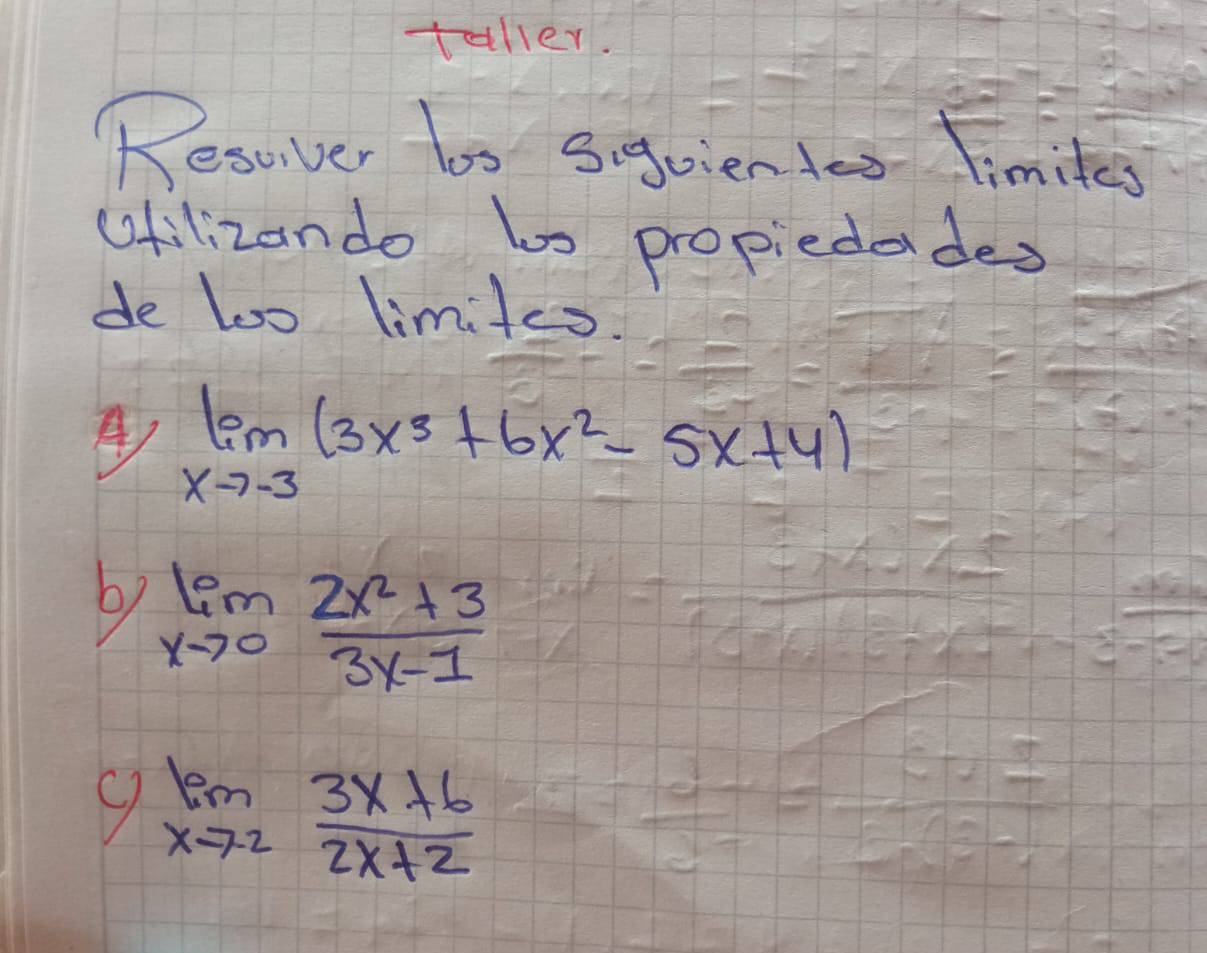 taller.
Resolver los siguientes limites
utilizando las propiedades
de los limites.
A) lim (3x³ + 6x² - 5x + 4)
x→-3
b) lim 2x² + 3
x→0 3x - 1
c) lim 3x + 6
x→-2 2x + 2